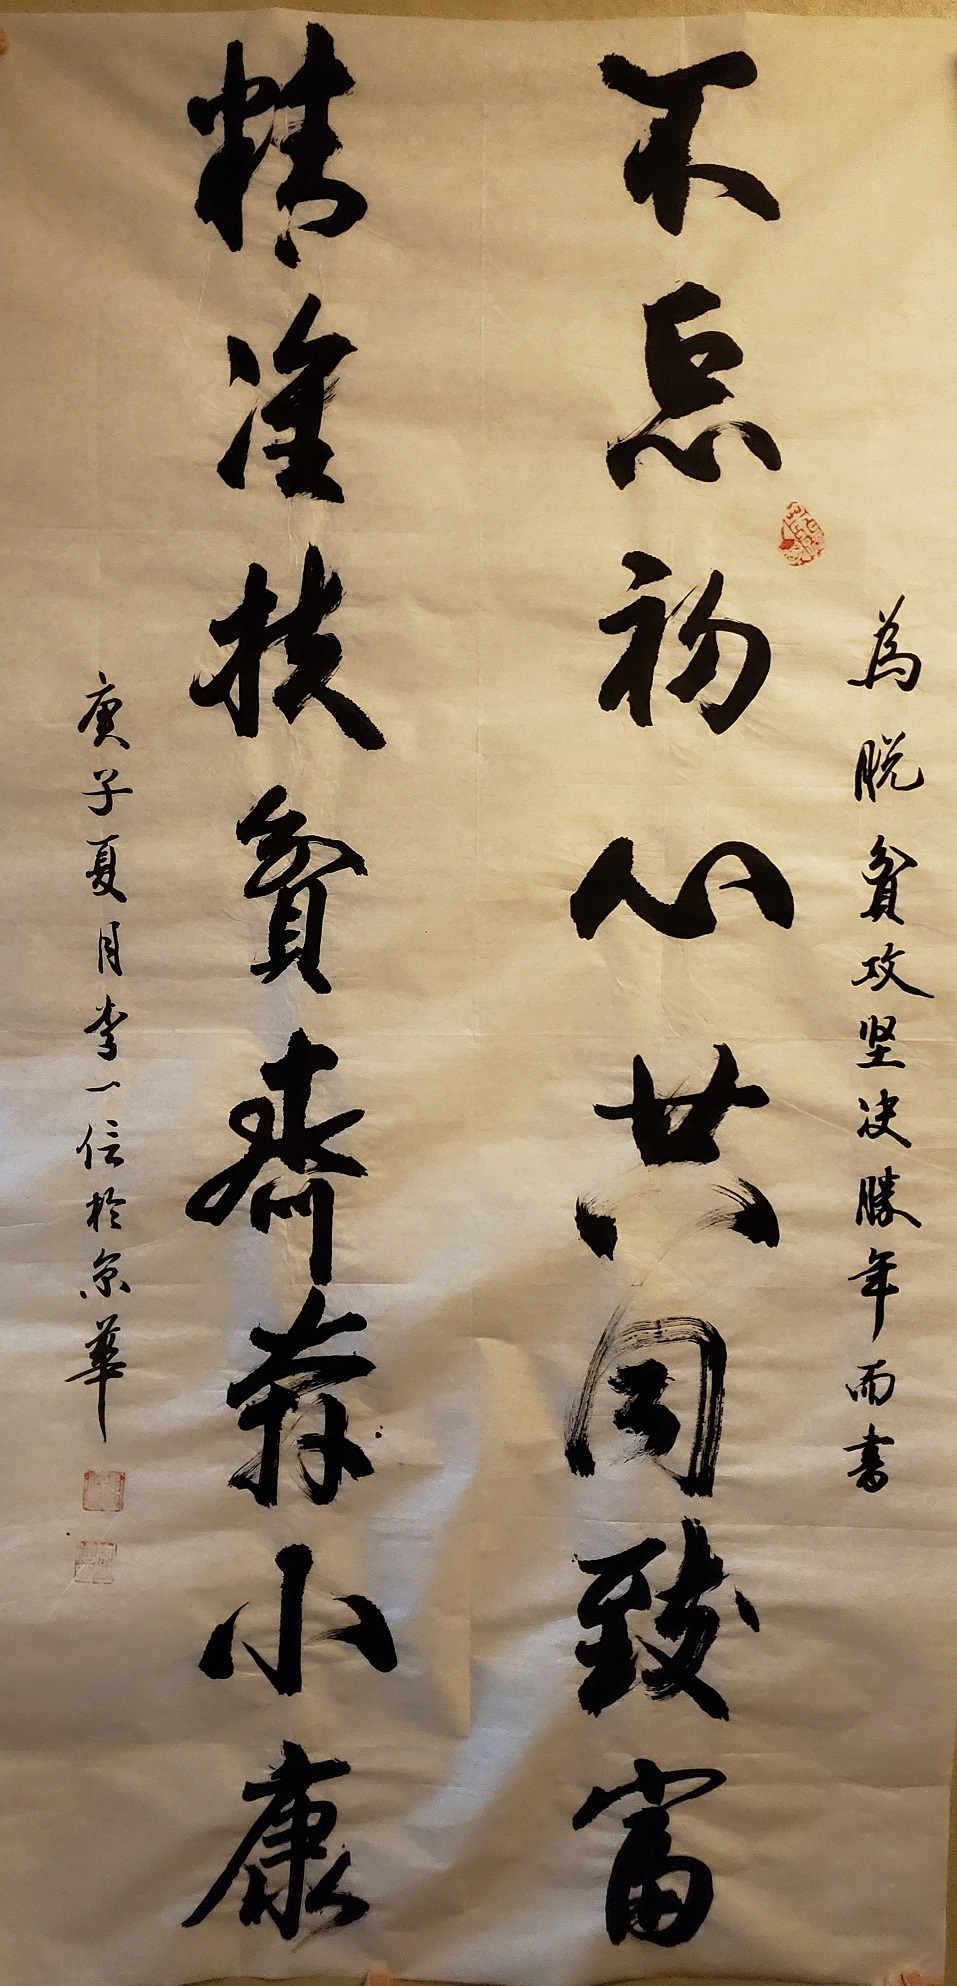 為脱貧攻坚决勝年而書
不忘初心共同致富
精准扶貧齊奔小康
庚子夏月李一信於京華